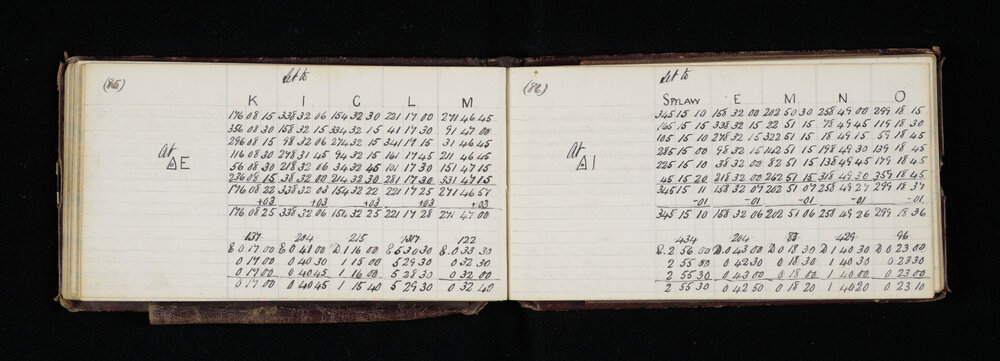 (85)
Set to
K I C L M
176 08 15 338 32 06 154 32 30 221 17 00 271 46 45
356 08 30 158 32 15 334 32 15 41 17 30 91 47 00
296 08 15 98 32 06 274 32 15 341 17 15 31 46 45
116 08 30 278 31 45 94 32 15 161 17 45 211 46 45
56 08 30 218 32 06 34 32 45 101 17 30 151 47 15
236 08 15 38 32 00 214 32 30 281 17 30 331 47 15
At △E
176 08 22 338 32 03 154 32 22 221 17 25 271 46 57
+03 +03 +03 +03
176 08 25 338 32 06 154 32 25 221 17 28 271 47 00
137 204 215 1317 122
E 0 17 00 E 0 41 00 D 1 16 00 E 5 30 30 E 0 33 30
0 19 00 0 40 30 1 15 00 5 29 30 0 32 30
0 19 00 0 40 45 1 16 00 5 28 30 0 32 00
0 17 00 0 40 45 1 15 40 5 29 30 0 32 40
(86)
Set to
SPYLAW E M N O
345 15 10 158 32 00 202 50 30 258 49 00 299 18 15
165 15 15 338 32 15 22 51 15 78 49 45 119 18 30
105 15 10 278 32 15 322 51 15 18 49 15 59 18 45
285 15 00 98 32 15 142 51 15 198 49 30 139 18 45
225 15 10 38 32 00 82 51 15 138 49 45 179 18 45
45 15 20 218 32 00 262 51 15 318 49 30 359 18 45
At △I
345 15 11 158 32 07 202 51 07 258 49 27 299 18 37
-01 -01 -01 -01 -01
345 15 10 158 32 06 202 51 06 258 49 26 299 18 36
434 204 83 429 96
E 2 56 00 D 0 43 00 D 0 18 30 D 1 40 30 D 0 23 00
2 55 00 0 42 30 0 18 30 1 40 30 0 23 30
2 55 30 0 43 00 0 18 00 1 40 00 0 23 00
2 55 30 0 42 50 0 18 20 1 40 20 0 23 10